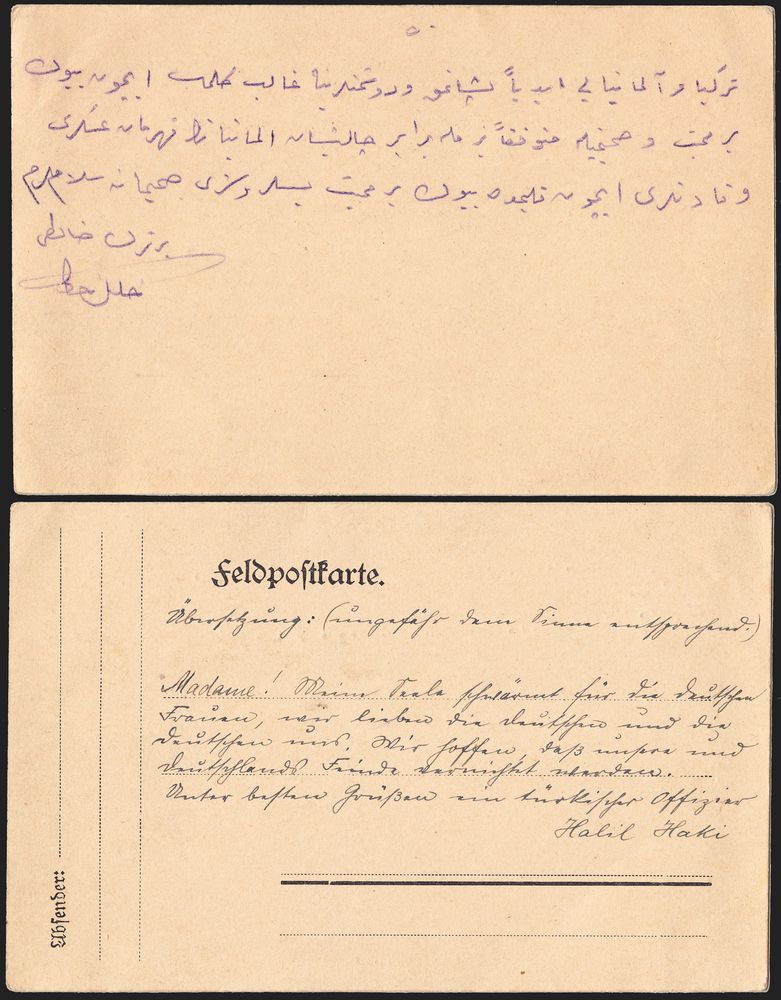 تركيا و آلمانيايى ابدياً ياشاتمق ودوشمنلرينه غالب كلمك ايچون بيوك
بر محبت و صميميتله متوفقاً بزمله برابر چاليشان المانيانك قهرمان عسكرى
وقادنلرى ايچون قلبمده بيوك بر محبت بسلر وسزى صميمانه سلاملارم
بر ترك ضابطى
خليل حقى
Feldpostkarte.
Übersetzung: (ungefähr dem Sinne entsprechend.)
Madame! Meine Seele schwärmt für die deutschen
Frauen, wir lieben die Deutschen und die
Deutschen uns. Wir hoffen, daß unsere und
Deutschlands Feinde vernichtet werden.
Unter besten Grüßen ein türkischer Offizier
Halil Haki
Absender: